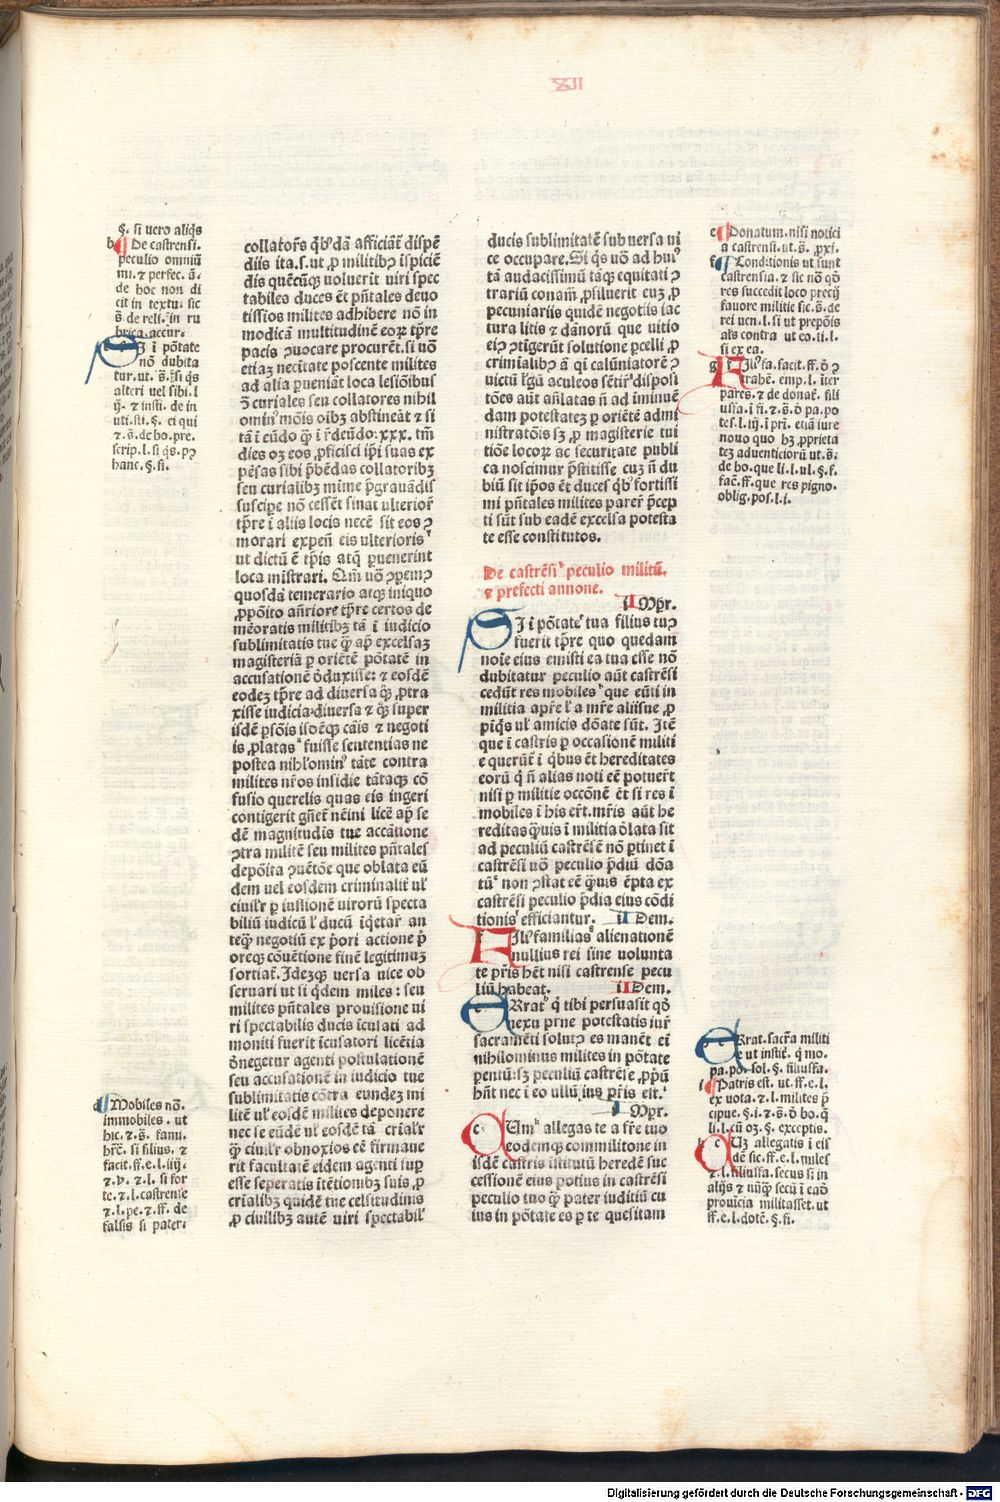 XII
§. si uero aliqͥs
b De castrensi.
peculio omniũ
mi. ⁊ perfec. ã.
de hoc non di
cit in textu. sic
s̃. de reli. in ru
brica. accur.
SI ĩ põtate
nõ dubita
tur. ut. s̃. si qͥs
alteri uel sibi. l
ij. ⁊ insti. de in
uti. sti. §. ei qui
⁊. s̃. de bo. pre.
scrip. l. si qͥs. pꝛ
hanc. §. fi.
d Mobiles nõ.
immobiles. ut
hic. ⁊. s̃. fami.
hr̃c. si filius. ⁊
facit. ff. e. l. iiij.
⁊. v. ⁊. l. si for
te. ⁊. l. castrense
⁊. l. pe. ⁊. ff. de
falsis si pater.
collator̃s qͥbꝰdã afficiãt̃ dispẽ
diis ita. s. ut ꝓ militibꝫ ĩspiciẽ
dis quẽcũqꝫ uoluerit uiri spec
tabiles duces ẽt p̃ñtales deuo
tissĩos milites adhibere nõ in
modicã multitudinẽ eoꝝ tp̃re
pacis ꝯuocare procurẽt. si uõ
etiaꝫ necitate poscente milites
ad alia ꝑueniãt loca lesiõibus
õ curiales seu collatores nihil
ominꝰ mõis oĩbꝫ abstineãt ⁊ si
tã ĩ eũdo qꝫ ĩ r̃deũdo. xxx. tm̃
dies oꝫ eos ꝓficisci ip̃i suas ex
pẽsas sibi p̃bẽdas collatoribꝫ
seu curialibꝫ mĩme p̃grauãdis
suscipe nõ cessẽt sinat ulterior̃
tp̃re ĩ aliis locis necẽ sit eos ꝯ
morari expeñ eis ulterioris
ut dictũ ẽ tp̃is atqꝫ ꝑuenerint
loca mistrari. Qm̃ uõ ꝯꝑimꝰ
quosdã temerario atqꝫ iniquo
ꝓpõito añriore tp̃re certos de
mẽoratis militibꝫ tã ĩ iudicio
sublimitatis tue qꝫ ap̃ excelsaꝫ
magisteriã ꝑ oriẽtẽ põtatẽ in
accusationẽ õduxisse: ⁊ eosdẽ
eodeꝫ tp̃re ad diuersa qꝫ ꝓtra
xisse iudicia diuersa ⁊ qꝫ super
isdẽ ꝑsõis isdẽqꝫ cãis ⁊ negoti
is ꝓlatas fuisse sententias ne
postea nihl'ominꝰ tate contra
milites nr̃os insidie tãtaqꝫ cõ
fusio querelis quas eis ingeri
contigerit gñet̃ nẽini licẽ ap̃ se
dẽ magnitudĩs tue accãtione
ꝯtra militẽ seu milites p̃ñtales
depõita ꝯuẽtõe que oblata eũ
dem uel eosdem criminalit̃ ul'
ciuil'r ꝑ iustionẽ uirorũ specta
biliũ iudicũ l' ducũ ĩq̃etar̃ an
teqꝫ negotiũ ex p̃ori actione p̃
oreqꝫ cõuẽtione finẽ legitimuꝫ
sortiat̃. Idezqꝫ uersa uice ob
seruari ut si qͥdem miles: seu
milites p̃ñtales prouisione ui
ri spectabilis ducis ĩculati ad
moniti fuerit ĩcusatori licẽtia
õnegetur agenti postulationẽ
seu accusationẽ in iudicio tue
sublimitatis cõtra eundeꝫ mi
litẽ ul' eosdẽ milites deponere
nec se eũdẽ ul' eosdẽ tã crĩal'r
qꝫ ciuil'r obnoxios eẽ firmaue
rit facultatẽ eidem agenti suꝑ
esse seꝑatis itẽtionibꝫ suis ꝓ
crialibꝫ quidẽ tue celsitudinis
ꝓ ciuilibꝫ autẽ uiri spectabil'
ducis sublimitatẽ sub uersa ui
ce occupare. Si qͥs uõ ad huiꝰ
tã audacissimũ tãqꝫ equitati ꝯ
trariũ conam̃ ꝓsiluerit cuꝫ ꝓ
pecuniariis quidẽ negotiis iac
tura litis ⁊ dãnorũ que uitio
eiꝰ ꝯtigerũt solutione ꝑcelli ꝓ
crimĩalibꝫ ã qi calũniatorẽ ꝯ
uictũ l'gũ aculeos sẽtir̃ disposi
tões aũt añlatas ñ ad iminuẽ
dam potestateꝫ ꝑ oriẽtẽ admi
nistratõis sꝫ ꝓ magisterie tui
tiõe locoꝝ ac securitate publi
ca noscimur p̃stitisse cuꝫ ñ du
biũ sit ip̃os ẽt duces qͥbꝰ fortissi
mi p̃ñtales milites parer̃ p̃cep
ti sũt sub eadẽ excelsa potesta
te esse constitutos.
De castrẽsi peculio militũ.
⁊ prefecti annone.
I Mp̃r.
SI ĩ põtate tua filius tuꝰ
fuerit tp̃re quo quedam
noĩe eius emisti ea tua esse nõ
dubitatur peculio aũt castrẽsi
cedũt res mobiles que eũti in
militia a pr̃e l' a mr̃e aliisue ꝓ
pĩqͥs ul' amicis dõate sũt. Itẽ
que ĩ castris ꝑ occasionẽ militi
e querũt̃ ĩ qͥbus ẽt hereditates
eorũ q̃ ñ alias noti eẽ potuer̃t
nisi ꝑ militie occõnẽ ẽt si res ĩ
mobiles ĩ his er̃t. mr̃is aũt he
reditas qͣuis ĩ militia õlata sit
ad peculiũ castrẽsẽ nõ ꝑtinet ĩ
castrẽsi uõ peculio p̃diũ dõa
tũ non ꝯstat eẽ qͣuis ẽpta ex
castrẽsi peculio p̃dia eius cõdi
tionis efficiantur. II Dem.
FIlꝰfamilias alienationẽ
nullius rei sine uolunta
te pr̃is hẽt nisi castrense pecu
liũ habeat. II Dem.
ERratꝰ q̃ tibi persuasit qõ
nexu prne potestatis iur̃
sacramẽti solutꝰ es manẽt eĩ
nihilominus milites in põtate
pentũ: sꝫ peculiũ castrẽse ꝓp̃ũ
hñt nec ĩ eo ullũ ius pr̃is est.
I Mp̃r.
CUm allegas te a fr̃e tuo
eodemqꝫ commilitone in
isdẽ castris ĩstitutũ heredẽ suc
cessionẽ eius potius in castrẽsi
peculio tuo qꝫ pater iuditiũ cu
ius in põtate es ꝑ te quesitam
e Donatum. nisi notici
a castrensi. ut. s̃. ꝓxi.
f Conditionis ut sunt
castrensia. ⁊ sic nõ qõ
res succedit loco precij
fauore militie sic. s̃. de
rei uen. l. si ut prepõis
als contra ut eo. li. l.
si ex ea.
g FIlꝰfa. facit. ff. õ ꝯ
trahẽ. emp. l. iter
pares. ⁊ de donat̃. fili
usfa. ĩ fi. ⁊. s̃. õ pa. po
tes. l. iij. ĩ pri. etiã iure
nouo quo hꝫ ꝓprieta
teꝫ aduenticiorũ ut. s̃.
de bo. que li. l. ul. §. f.
fac̃. ff. que res pigno.
oblig. pos. l. i.
ERrat. sacr̃a militi
e ut instit̃. q̃ mo.
pa. po. sol. §. filiusfa.
i Patris est. ut. ff. e. l.
ex uota. ⁊. l. milites p̃
cipue. §. i. ⁊. s̃. õ bo. q̃
li. l. cũ oꝫ. §. exceptis.
k CUꝫ allegatis ĩ eis
dẽ sic. ff. e. l. miles
⁊. l. filiusfa. secus si in
alijs ⁊ nũqꝫ secũ ĩ eaõ
prouicia militasset. ut
ff. e. l. dotẽ. §. fi.
Digitalisierung gefördert durch die Deutsche Forschungsgemeinschaft - DFG